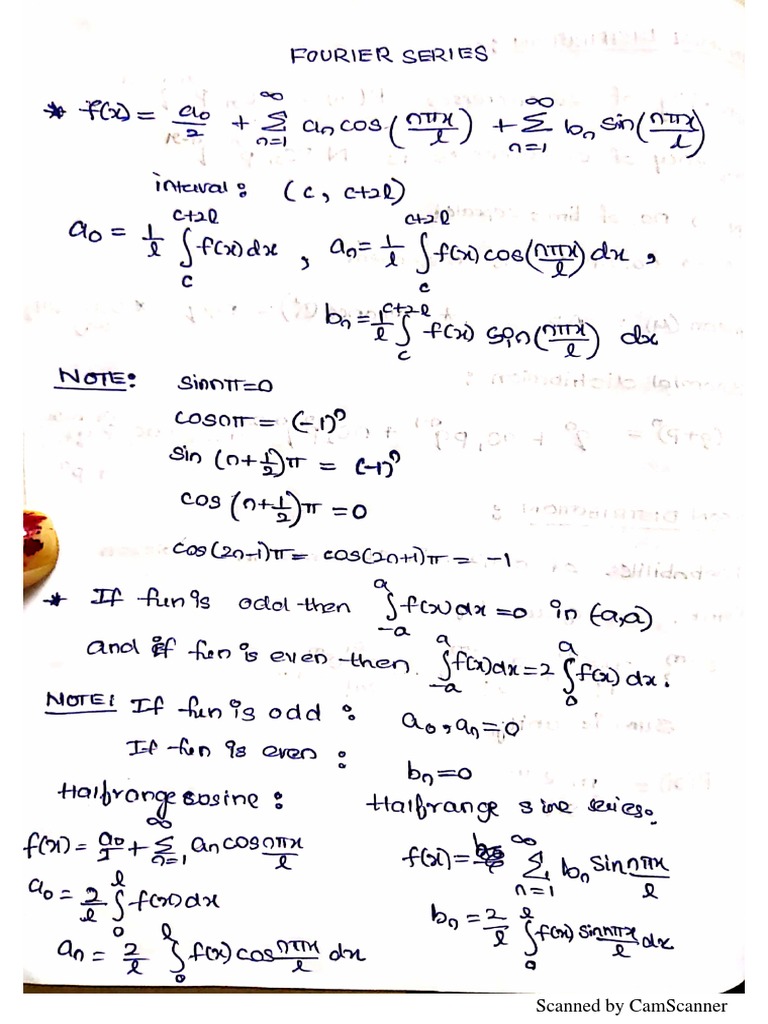 FOURIER SERIES
* f(x) = a0/2 + ∞Σn=1 an cos(nπx/l) + ∞Σn=1 bn sin(nπx/l)
interval: (c, c+2l)
a0 = 1/l ∫c^c+2l f(x)dx, an = 1/l ∫c^c+2l f(x)cos(nπx/l)dx,
bn = 1/l ∫c^c+2l f(x) sin(nπx/l) dx
NOTE: sinnπ=0
cosnπ = (-1)^n
sin (n+1/2)π = (-1)^n
cos (n+1/2)π = 0
cos(2n-1)π = cos(2n+1)π = -1
* If fun is odd then ∫-a^a f(x)dx=0 in (-a,a)
and if fun is even then ∫-a^a f(x)dx = 2 ∫0^a f(x)dx.
NOTE: If fun is odd : a0, an=0
If fun is even : bn=0
Halfrange cosine : Halfrange sine series:
f(x) = a0/2 + ∞Σn=1 an cos nπx/l f(x) = ∞Σn=1 bn sin nπx/l
a0 = 2/l ∫0^l f(x)dx bn = 2/l ∫0^l f(x) sin nπx/l dx
an = 2/l ∫0^l f(x)cos nπx/l dx
Scanned by CamScanner